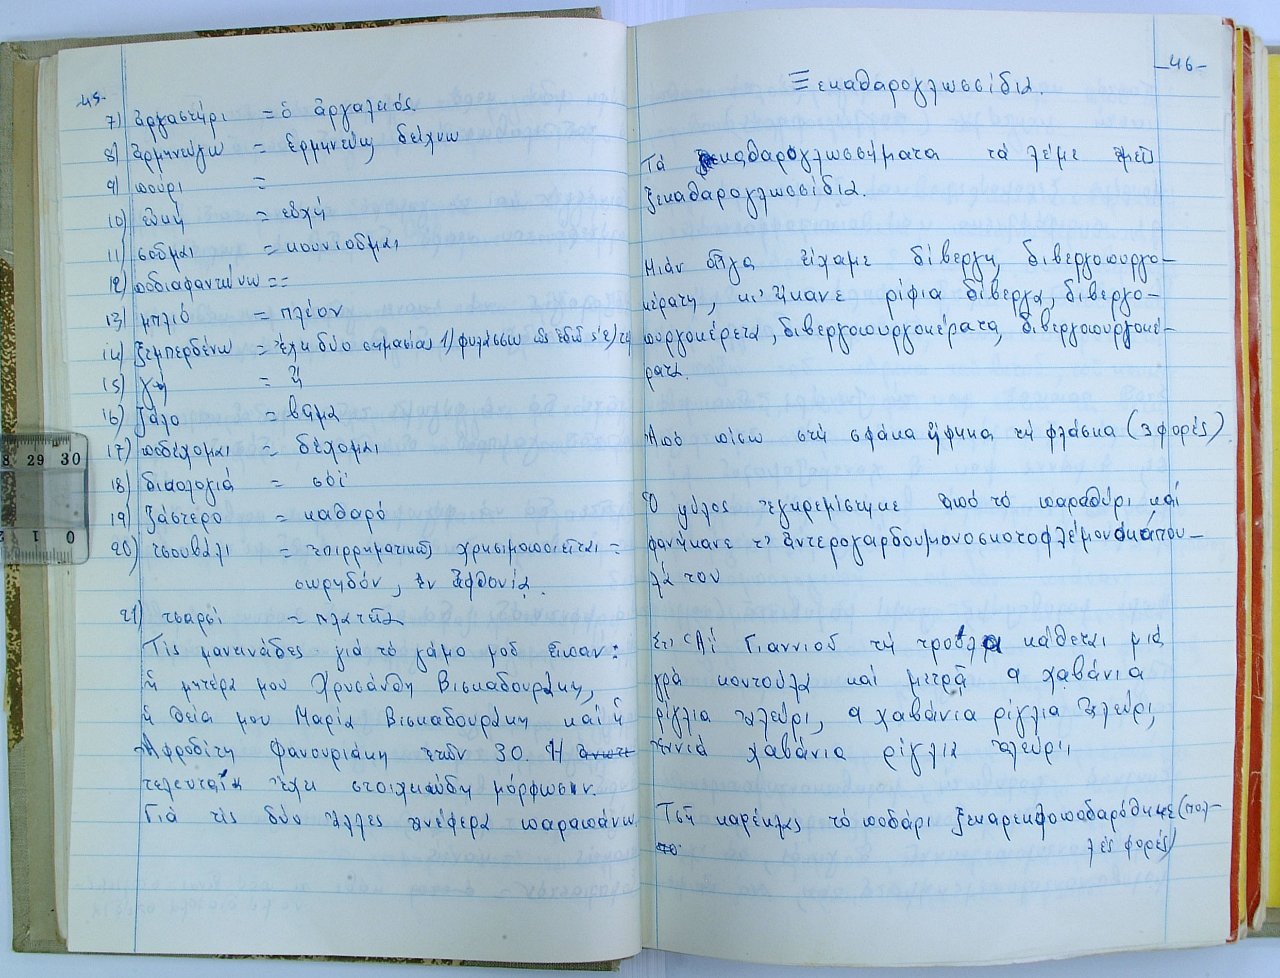 -45-
7) ἀργαστήρι = ὁ ἀργαλειός.
8) ἀρμηνεύγω = ἑρμηνεύω, δείχνω
9) πούρι =
10) εὐκή = εὐχή
11) σοῦμαι = κουνιοῦμαι
12) ποδιαφαντώνω = =
13) μπλιό = πλέον
14) ξεμπερδένω = ἔχει δύο σημασίαι 1) φυλάσσω ὡς ἐδῶ
15) γῆ = ἤ
16) ζάλο = βῆμα
17) ποδέχομαι = δέχομαι
18) διαολογιά = σόϊ
19) ξάστερο = καθαρό
20) τσουβάλι = ἐπιρρηματικῶς χρησιμοποιεῖται =
σωρηδόν, ἐν ἀφθονίᾳ.
21) τσαρσί = πλατεῖα
Τίς μαντινάδες γιά τό γάμο μοῦ εἶπαν:
ἡ μητέρα μου Χρυσάνθη Βισκαδουράκη,
ἡ θεία μου Μαρία Βισκαδουράκη καί ἡ
Ἀφροδίτη Φανουριάκη ἐτῶν 30. Ἡ
τελευταία ἔχει στοιχειώδη μόρφωσιν.
Γιά τίς δύο ἄλλες ἀνέφερα παραπάνω.
-46-
Ξεκαθαρογλωσσίδια.
Τά ξεκαθαρογλωσσήματα τά λέμε ἐμεῖς
ξεκαθαρογλωσσίδια.
Μιάν αἶγα εἴχαμε δίβεργη, διβεργοπυργο-
κέρατη, κι' ἤκανε ρίφια δίβεργα, διβεργο-
πυργοκέρατα, διβεργοπυργοκέρατα, διβεργοπυργοκέ-
ρατα.
Ἀπό πίσω στή σφάκα ἤφηκα τή φλάσκα (3 φορές)
Ὁ γύλος ἐγκρεμίστηκε ἀπό τό παραθύρι καί
φανήκανε τ' ἀντερογαρδουμονοσκωτοφλεμονοκάπου-
λά του
Στ' Ἁϊ Γιαννιοῦ τή τρούλα κάθεται μιά
γρά κοντούλα καί μετρᾶ 9 χαβάνια
ρίγλια ἀλεύρι, 9 χαβάνια ρίγλια ἀλεύρι,
ἐννιά χαβάνια ρίγλια ἀλεύρι,
Τσῆ καρέκλας τό ποδάρι ξεκαρεκλοποδαρώθηκε (πολ-
λές φορές)